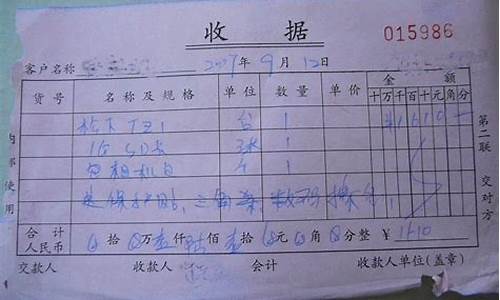 收 据
015986
客户名称 2007年 9月 12日
货号 名称及规格 单位 数量 单价 金额
十万千百十元角分
松下 TZ1 台 1 ¥1610
1G SD卡 张 1
包相机包 个 1
送保护贴,三角架,数码
合计 人民币 拾 万壹仟陆佰壹拾 元 角 分整 ¥ 1610
交款人 收款人 会计 收款人单位(盖章)
内部使用
第二联 交对方